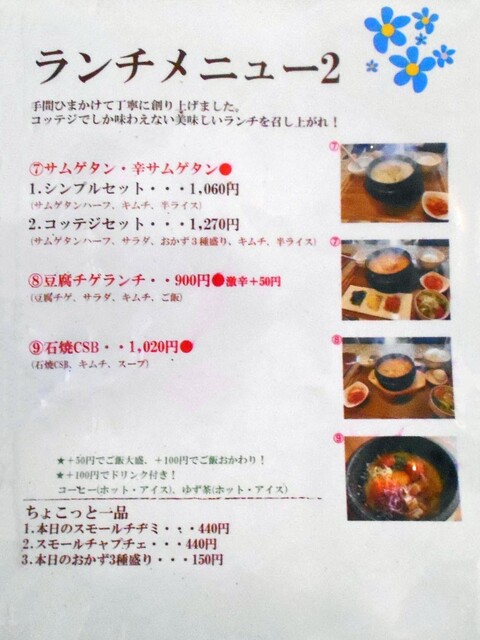 ランチメニュー2
手間ひまかけて丁寧に創り上げました。
コッテジでしか味わえない美味しいランチを召し上がれ！
⑦サムゲタン・辛サムゲタン●
1.シンプルセット・・・1,060円
(サムゲタンハーフ、キムチ、半ライス)
2.コッテジセット・・・1,270円
(サムゲタンハーフ、サラダ、おかず３種盛り、キムチ、半ライス)
⑧豆腐チゲランチ・・900円●激辛+50円
(豆腐チゲ、サラダ、キムチ、ご飯)
⑨石焼CSB・・1,020円●
(石焼CSB、キムチ、スープ)
⑦
⑦
⑧
⑨
★+50円でご飯大盛、+100円でご飯おかわり！
★+100円でドリンク付き！
コーヒー(ホット・アイス)、ゆず茶(ホット・アイス)
ちょこっと一品
1.本日のスモールチヂミ・・・440円
2.スモールチャプチェ・・・440円
3.本日のおかず3種盛り・・・150円